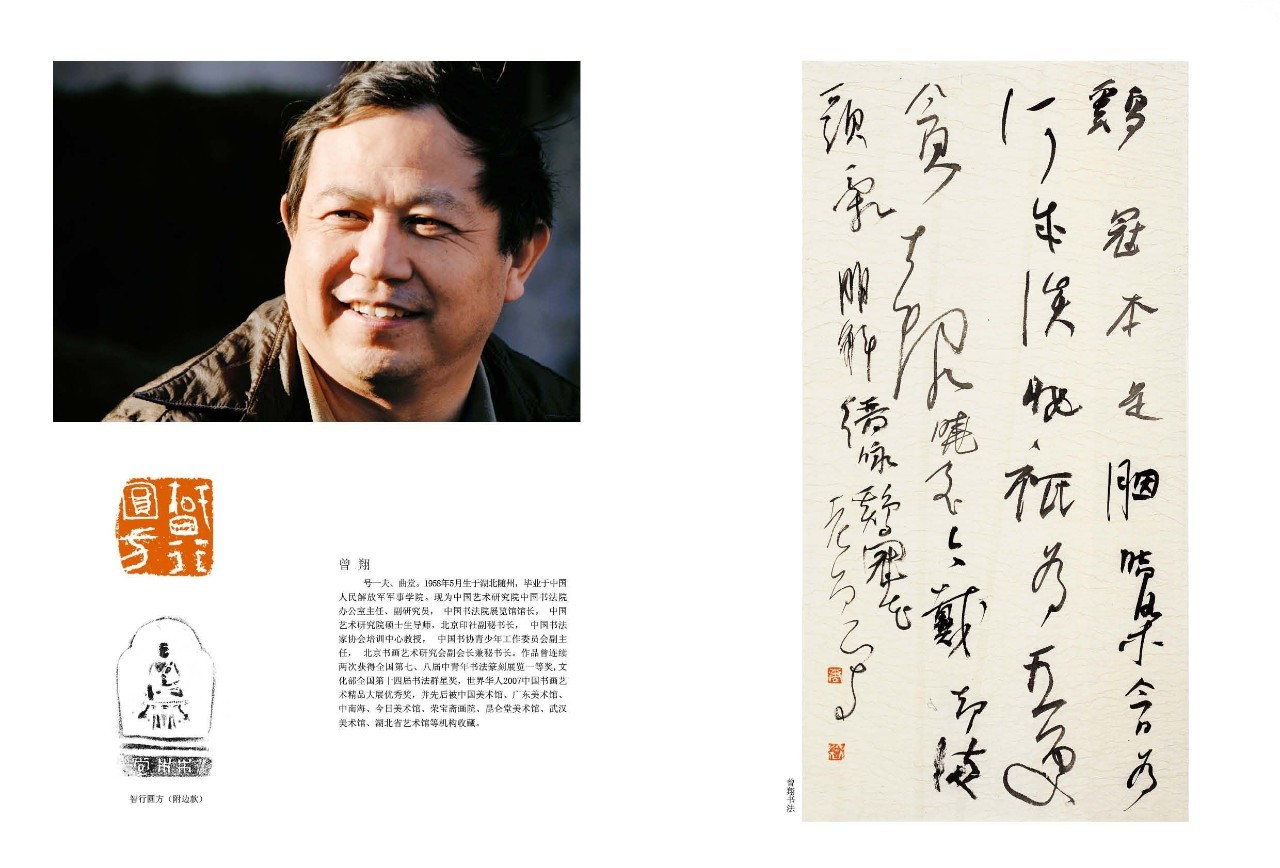 曾 翔
号一夫、曲堂。1958年5月生于湖北随州，毕业于中国
人民解放军军事学院。现为中国艺术研究院中国书法院
办公室主任、副研究员， 中国书法院展览馆馆长， 中国
艺术研究院硕士生导师，北京印社副秘书长， 中国书法
家协会培训中心教授， 中国书协青少年工作委员会副主
任， 北京书画艺术研究会副会长兼秘书长。作品曾连续
两次获得全国第七、八届中青年书法篆刻展览一等奖,文
化部全国第十四届书法群星奖，世界华人2007中国书画艺
术精品大展优秀奖，并先后被中国美术馆、广东美术馆、
中南海、今日美术馆、荣宝斋画院、昆仑堂美术馆、武汉
美术馆、湖北省艺术馆等机构收藏。
智行圓方
智行圆方（附边款）
鷄冠本是胭脂染今日为
何成淡妝祗为五更
貪报曉至今戴却滿
頭霜 明解縉咏鷄冠花
曾翔书法